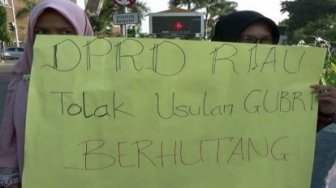 DPRD RIAU
Tolak Usulan GUBRI
BERHUTANG